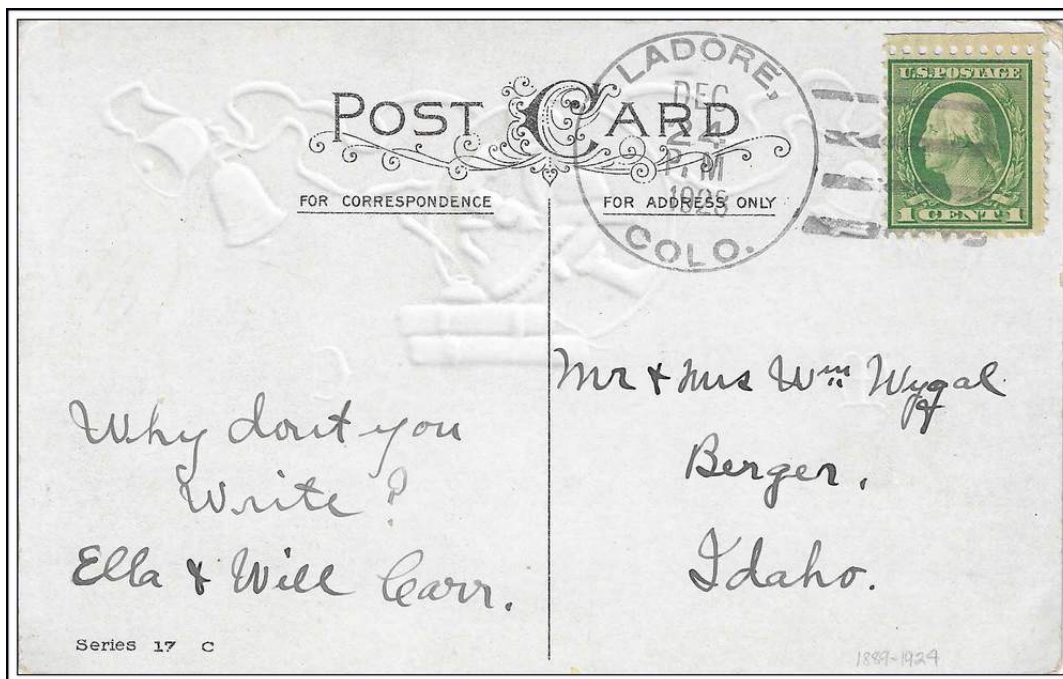 POST CARD
FOR CORRESPONDENCE
FOR ADDRESS ONLY
LADORE,
DEC
24
P.M
COLO.
U.S. POSTAGE
1 CENT 1
Why dont you
Write?
Ella & Will Carr.
Mr & Mrs Wm Wygal
Berger,
Idaho.
Series 17 C
1889-1924